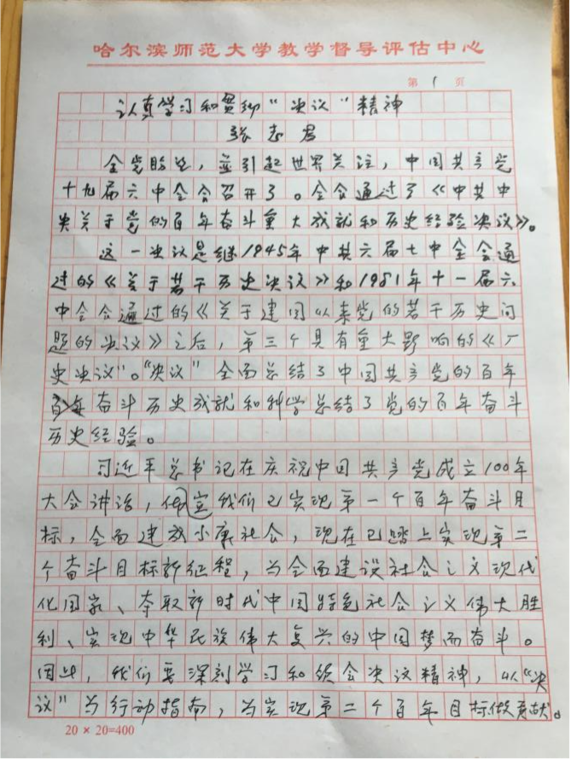 哈尔滨师范大学教学督导评估中心
第 1 页
认真学习和贯彻“决议”精神
张志君
全党盼望，并引起世界关注，中国共产党
十九届六中全会召开了。全会通过了《中共中
央关于党的百年奋斗重大成就和历史经验决议》。
这一决议是继1945年中共六届七中全会通
过的《关于若干历史决议》和1981年十一届六
中全会通过的《关于建国以来党的若干历史问
题的决议》之后，第三个具有重大影响的《历
史决议”。“决议”全面总结了中国共产党的百年
奋斗历史成就和科学总结了党的百年奋斗
历史经验。
习近平总书记在庆祝中国共产党成立100年
大会讲话，宣我们已实现第一个百年奋斗目
标，全面建成小康社会，现在已踏上实现第二
个奋斗目标新征程，为全面建设社会主义现代
化国家、夺取新时代中国特色社会主义伟大胜
利、实现中华民族伟大复兴的中国梦而奋斗。
因此，我们要深刻学习和领会决议精神，以“决
议”为行动指南，为实现第二个百年目标做贡献。
20 × 20=400